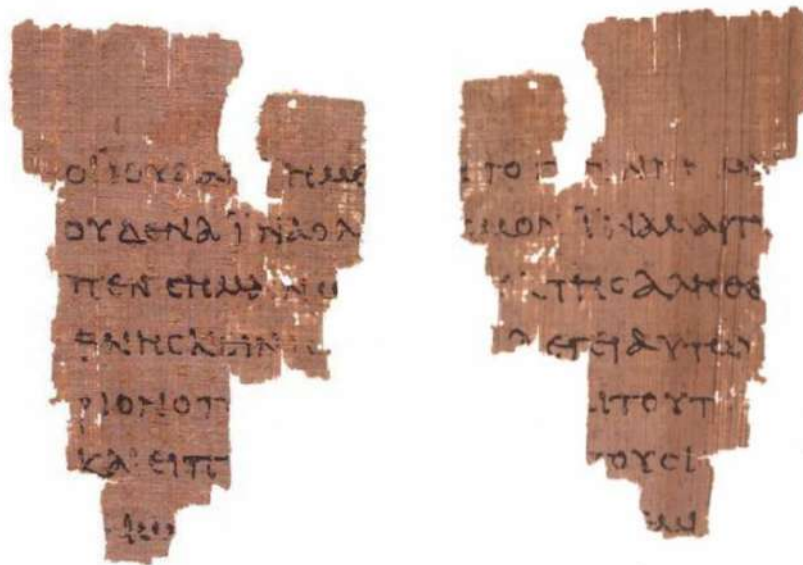 ΟΙ ΙΟΥΔΑΙ ΗΜΕ
ΟΥΔΕΝΑ ΪΝΑ Ο Λ
ΠΕΝ ϹΗΜΑΙΝΩ
ΘΝΗϹΚΕΙΝ
ΡΙΟΝ Ο Π
ΚΑΙ ΕΙΠ
ΤΟ Γ ΝΝΗΜΑΙ
ϹΜΟΝ ΪΝΑ ΜΑΡΤΥ
ΤΗϹ ΑΛΗΘΕ
ΛΕΓΕΙ ΑΥΤΩ
ΑΙ ΤΟΥΤ
ΤΟΥϹ Ι